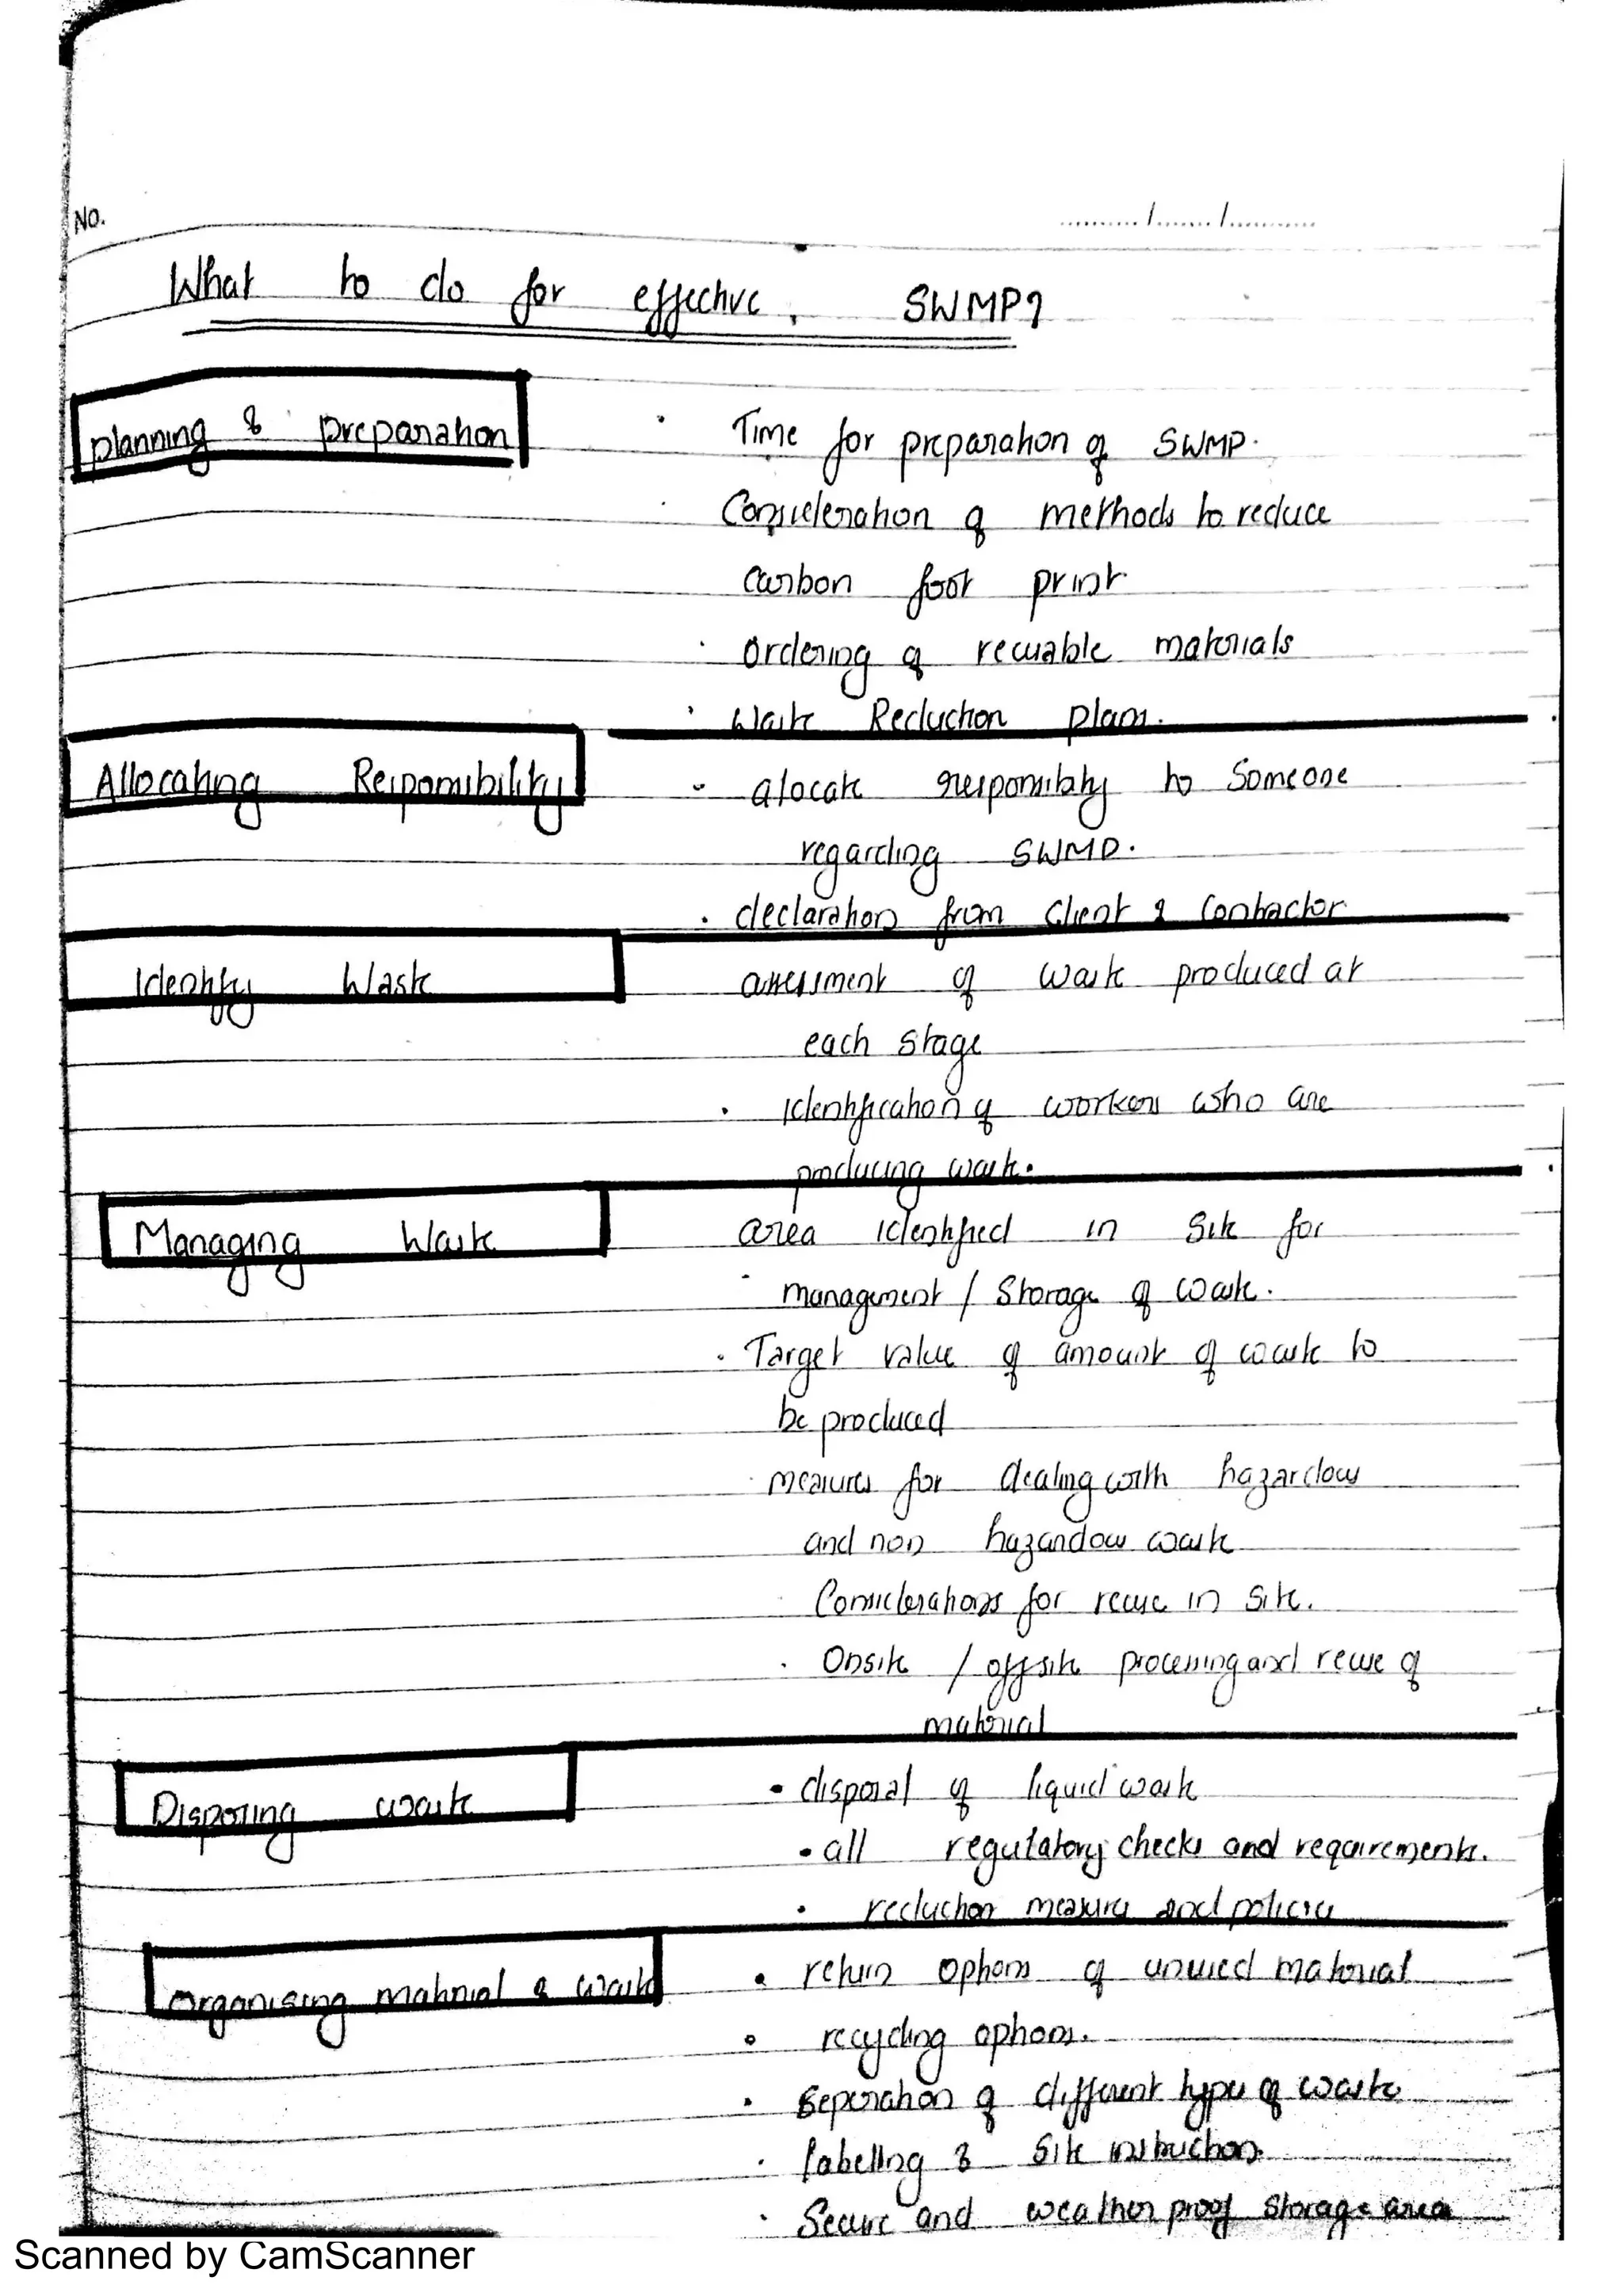 No.
........./......./...........
What to do for effective. SWMP?
planning & preparation
· Time for preparation of SWMP.
· Consideration of methods to reduce
carbon foot print
· Ordering of reusable materials
· Waste Reduction plans.
Allocating Responsibility
- alocate responsibity to Someone
regarding SWMP.
· declaration from client & Contractor
Identify Waste
assessment of waste produced at
each stage
· identification of workers who are
producing waste.
Managing Waste
area identified in site for
· management / Storage of waste.
· Target value of amount of waste to
be produced
· measures for dealing with hazardous
and non hazardous waste
· Considerations for reuse in site.
· Onsite / offsite processing and reuse of
material
Disposing waste
• disposal of liquid waste
• all regulatory checks and requirements.
• reduction measures and policies
Organising material & waste
• return options of unused material
• recycling options.
• Seperation of different types of waste
· labelling & Site instructions
· Secure and weather proof storage area
Scanned by CamScanner